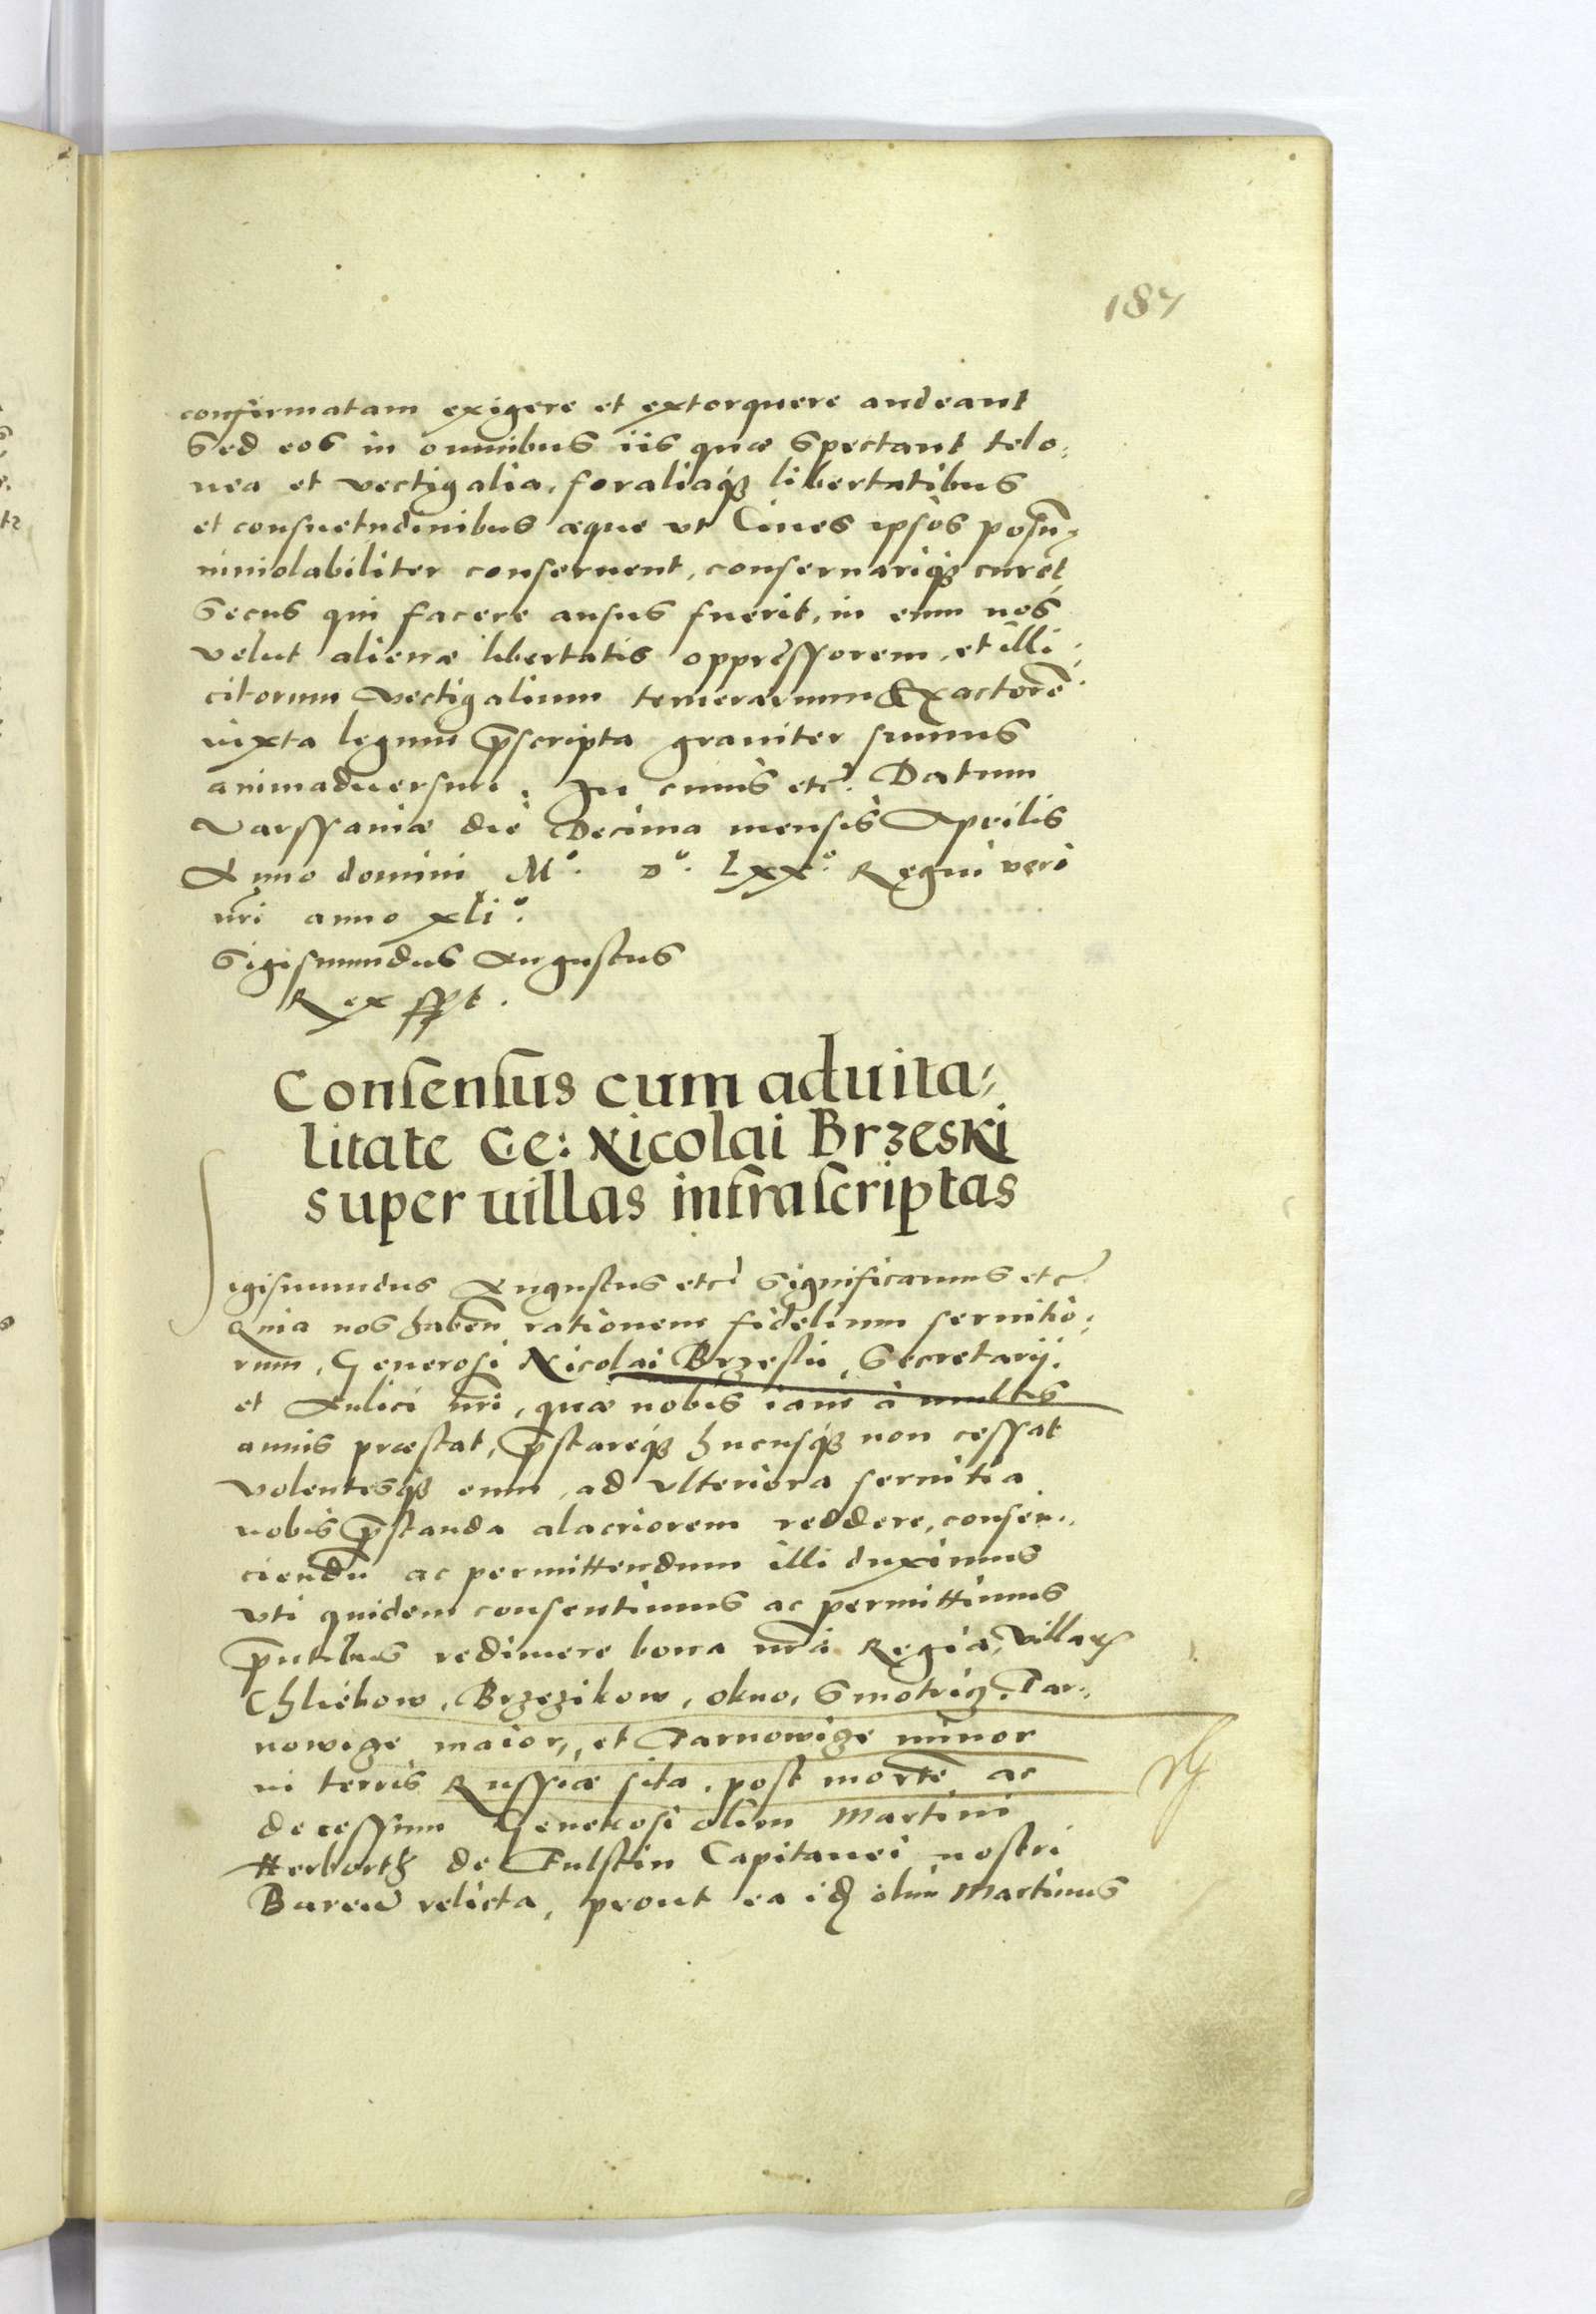 187
confirmatam exigere et extorquere audeant
Sed eos in omnibus iis quæ Spectant telo⸗
nea et vectigalia, foraliaqꝫ libertatibus
et consuetudinibus æque vt Ciues ipsos posn̄
inuiolabiliter conseruent, conseruariqꝫ curēt
Secus qui facere ausus fuerit, in eum nos
velut alienæ libertatis oppressorem, et illi⸗
citorum Vectigalium temerarium Exactorē
iuxta legum p̄scripta grauiter sumus
animaduersuri. In cuius etc̃. Datum
Varssauiæ die Decima mensis Aprilis
Anno domini Mº. Dº. Lxxº. Regni vero
nr̃i anno xliº.
Sigismundus Augustus
Rex sspt.
Consensus cum aduita⸗
litate Ge: Nicolai Brzeski
super uillas infrascriptas
Sigismundus Augustus etc̃ Significamus etc̃
Quia nos haben̄ rationem fidelium seruitio⸗
rum, Generosi Nicolai Brzeskii, Secretarij
et Aulici nr̃i, quæ nobis iam à multis
annis præstat, p̄stareqꝫ hucusqꝫ non cessat
volentesqꝫ eum, ad vlteriora seruitia
nobis p̄standa alacriorem reddere, consen⸗
ciendū ac permittendum illi duximus
vti quidem consentimus ac permittimus
p̄ntibus redimere bona nr̃a Regia, Villas
Chliebow, Brzezikow, okno, Smotricz, Tar⸗
nowize maior, et Tarnowize minor
in terris Russiæ sita, post mortē ac
decessum Generosi olim Martini
Herborth de Fulstin Capitanei nostri
Baren̄ relicta, prout ea idē olim Martinus